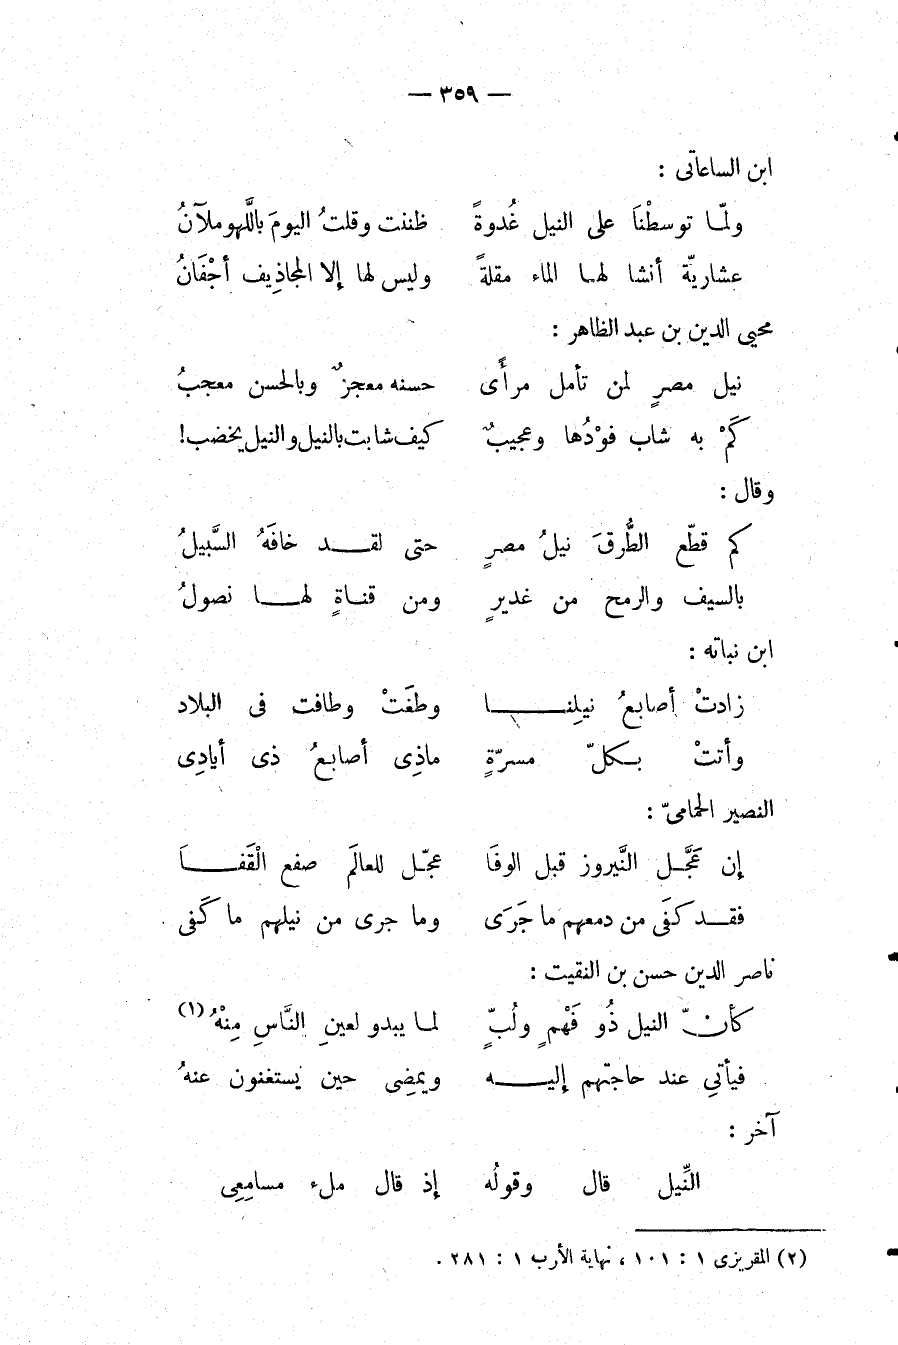 — ٣٥٩ —
ابن الساعاتى :
ولمّا توسطْنَا على النيل غُدوةً ظننت وقلتُ اليومَ باللَّهو ملآنُ
عشاريّة أنشا لها الماء مقلةً وليس لها إلا المجاذِيف أجْفَانُ
محيى الدين بن عبد الظاهر :
نيل مصرٍ لمن تأمل مرأًى حسنه معجزٌ وبالحسن معجبُ
كَمْ به شاب فوْدُها وعجيبٌ كيف شابت بالنيل والنيل يخضب!
وقال :
كم قطّع الطُّرقَ نيلُ مصرٍ حتى لقد خافَهُ السَّبيلُ
بالسيف والرمح من غديرٍ ومن قناةٍ لها نصولُ
ابن نباته :
زادتْ أصابعُ نيلِنا وطغَتْ وطافت فى البلاد
وأتتْ بكلّ مسرّةٍ ماذِى أصابعُ ذى أيادِى
النصير الحمامىّ :
إن عَجَّل النَّيروز قبل الوفَا عجّل للعالَم صفع الْقَفَا
فقد كفَى من دمعهم ما جَرَى وما جرى من نيلهم ما كَفى
ناصر الدين حسن بن النقيت :
كأنّ النيل ذُو فَهْمٍ ولُبٍّ لما يبدو لعينِ النَّاسِ مِنْهُ(١)
فيأتِي عند حاجتهم إليه ويمضِى حين يستغنون عنهُ
آخر :
النِّيل قال وقولُه إذ قال ملء مسامِعِى
(٢) المقريزى ١ : ١٠١ ، نهاية الأرب ١ : ٢٨١ .